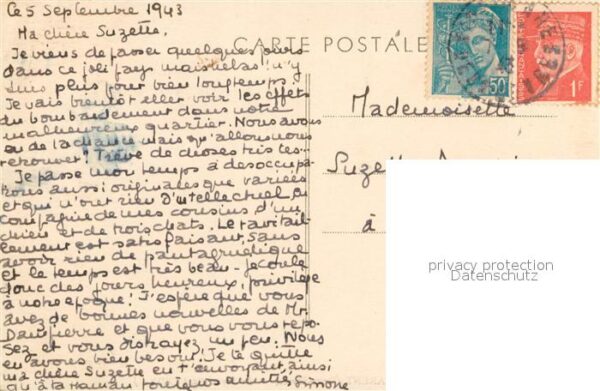 Ce 5 Septembre 1943
Ma chère Suzette,
Je viens de passer quelques jours
dans ce joli pays mais hélas n'y
suis plus pour bien longtemps.
Je vais bientôt aller voir les effets
du bombardement dans notre
malheureux quartier. Nous avons
eu de la chance mais qu'allons nous
retrouver! Trêve de choses tristes.
Je passe mon temps à des occupa-
tions aussi originales que variées
et qui n'ont rien d'intellectuel en
compagnie de mes cousins d'un
chien et de trois chats. Le ravitail-
lement est satisfaisant, sans
avoir rien de pantagruélique
et le temps est très beau - je coule
donc des jours heureux, privilège
à notre époque! J'espère que vous
avez de bonnes nouvelles de Mr
Dampierre et que vous vous repo-
sez et vous distrayez un peu. Nous
en avons bien besoin. Je te quitte
ma chère Suzette en t'envoyant ainsi
qu'à ta Maman toutes nos amitiés, Simone
CARTE POSTALE
50
1F
Mademoiselle
Suzette
à
privacy protection
Datenschutz